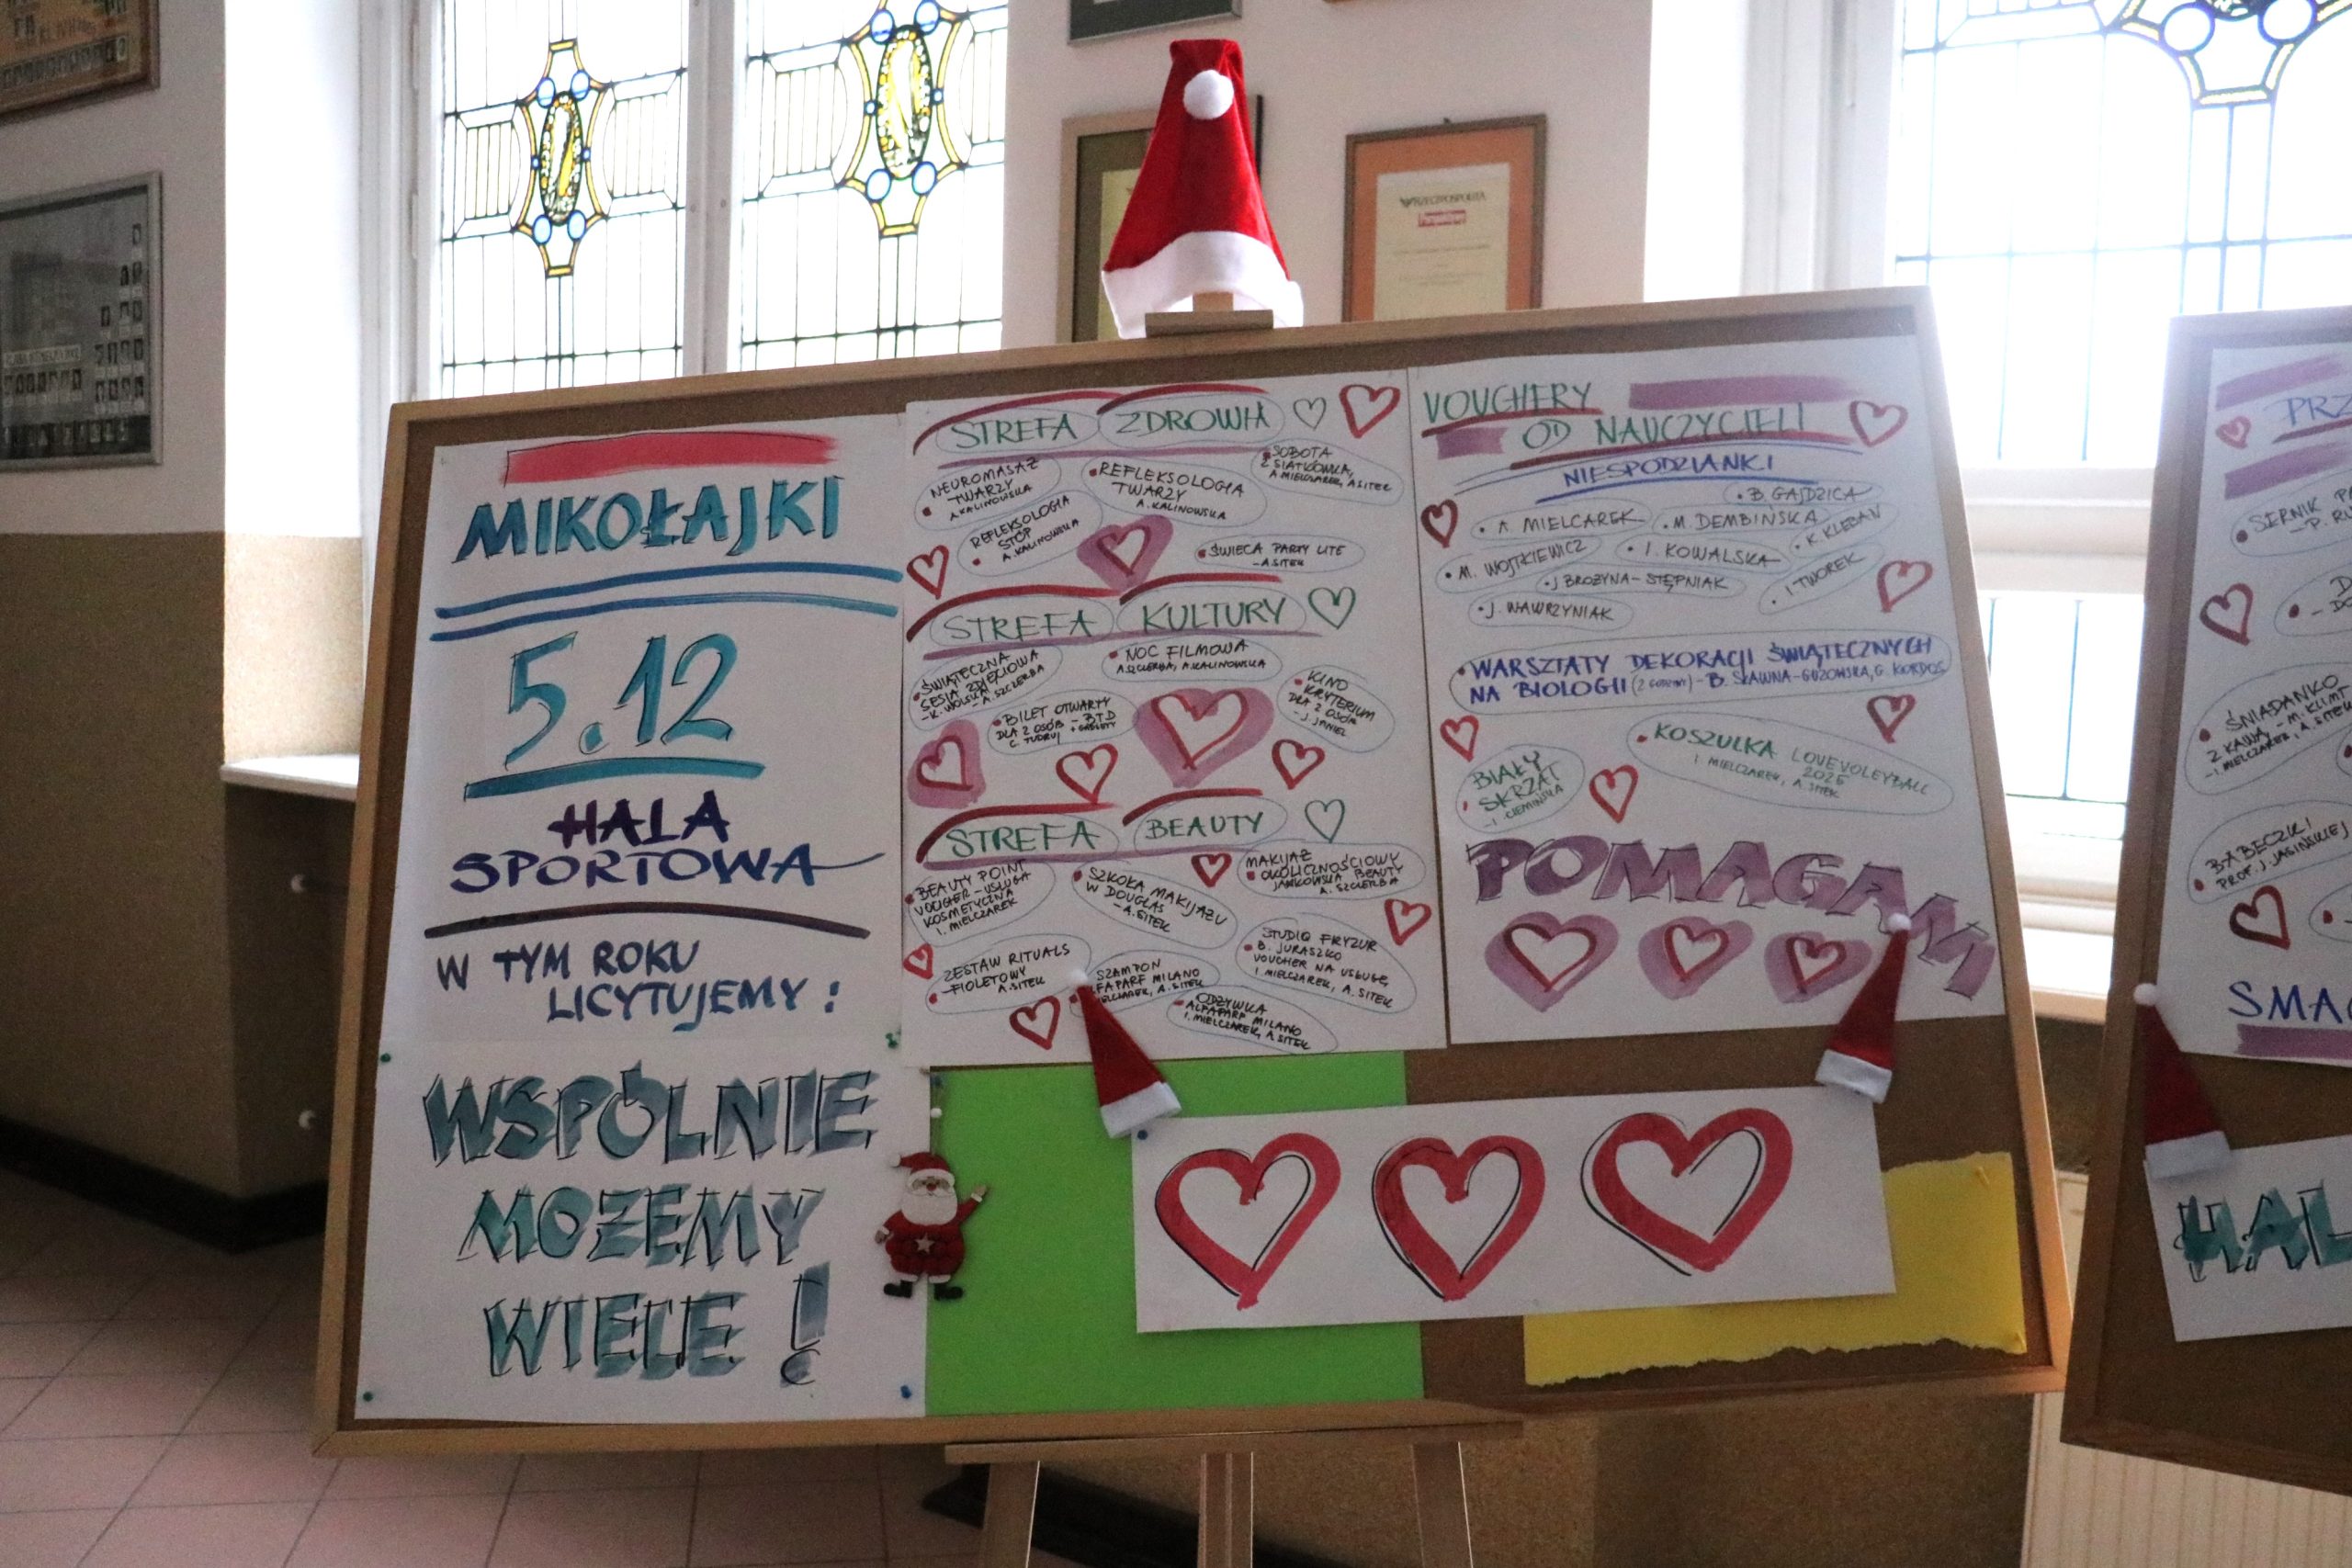 MIKOŁAJKI
5.12
HALA
SPORTOWA
W TYM ROKU
LICYTUJEMY:
WSPÓLNIE
MOŻEMY
WIELE!
STREFA ZDROWIA
NEUROMASAŻ
TWARZY
A.KALINOWSKA
REFLEKSOLOGIA
TWARZY
A. KALINOWSKA
SOBOTA
Z SIATKÓWKĄ,
A MIELCZAREK, A SITEK
REFLEKSOLOGIA
STÓP
A. KALINOWSKA
ŚWIECA PARTY LITE
- A.SITEK
STREFA KULTURY
ŚWIĄTECZNA
SESJA ZDJĘCIOWA
-K. WOLSKA
-A. SZCZERBA
NOC FILMOWA
A.SZCZERBA, A.KALINOWSKA
BILET OTWARTY
DLA 2 OSÓB - BTD
C. TUDRUJ + GADŻETY
KINO
KRYTERIUM
DLA 2 OSÓB
-J. JANIEL
STREFA BEAUTY
BEAUTY POINT
VOUCHER - USŁUGA
KOSMETYCZNA
I. MIELCZAREK
SZKOŁA MAKIJAŻU
W DOUGLAS
-A.SITEK
MAKIJAŻ
OKOLICZNOŚCIOWY
JANKOWSKA BEAUTY
A. SZCZERBA
ZESTAW RITUALS
FIOLETOWY
A.SITEK
SZAMPON
FAPARF MILANO
A. SITEK
STUDIO FRYZUR
B. JURASZKO
VOUCHER NA USŁUGĘ
I. MIELCZAREK, A. SITEK
ODŻYWKA
ALFAPARF MILANO
I. MIELCZAREK, A SITEK
VOUCHERY
OD NAUCZYCIELI
NIESPODZIANKI
B. GAJDZICA
A. MIELCAREK
M. DEMBIŃSKA
K KLEBAN
M. WOJTKIEWICZ
I. KOWALSKA
J BROŻYNA-STĘPNIAK
I TWOREK
J. WAWRZYNIAK
WARSZTATY DEKORACJI ŚWIĄTECZNYCH
NA BIOLOGII (2 GODZINY) - B. SŁAWNA-GUZOWSKA, G. KORDOS
BIAŁY
SKRZAT
-I. CIEMIŃSKA
KOSZULKA LOVEVOLEYBALL
2025
I MIELCZAREK, A. SITEK
POMAGAM
RZECZPOSPOLITA
SERNIK
ŚNIADANKO
Z KAWĄ
- M. KLIM
-I. MIELCZAREK, A. SITEK
BABECZKI
PROF. J. JASIŃSKIEJ
SMA
HAL